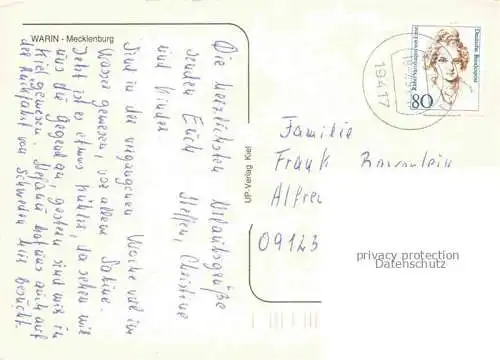 WARIN - Mecklenburg
Die herzlichsten Urlaubsgrüße
senden Euch Steffen, Christine
und Kinder
Sind in der vergangenen Woche viel im
Wasser gewesen, vor allem Sabine.
Jetzt ist es etwas kühler, da sehen wir
uns die Gegend an, gestern sind wir in
Kiel gewesen. Stefanie hat uns auch auf
der Rückfahrt von Schweden hier besucht.
UP-Verlag Kiel
Deutsche Bundespost
Rahel Varnhagen von Ense
80
19417
Familie
Frank
Alfred
09123
privacy protection
Datenschutz